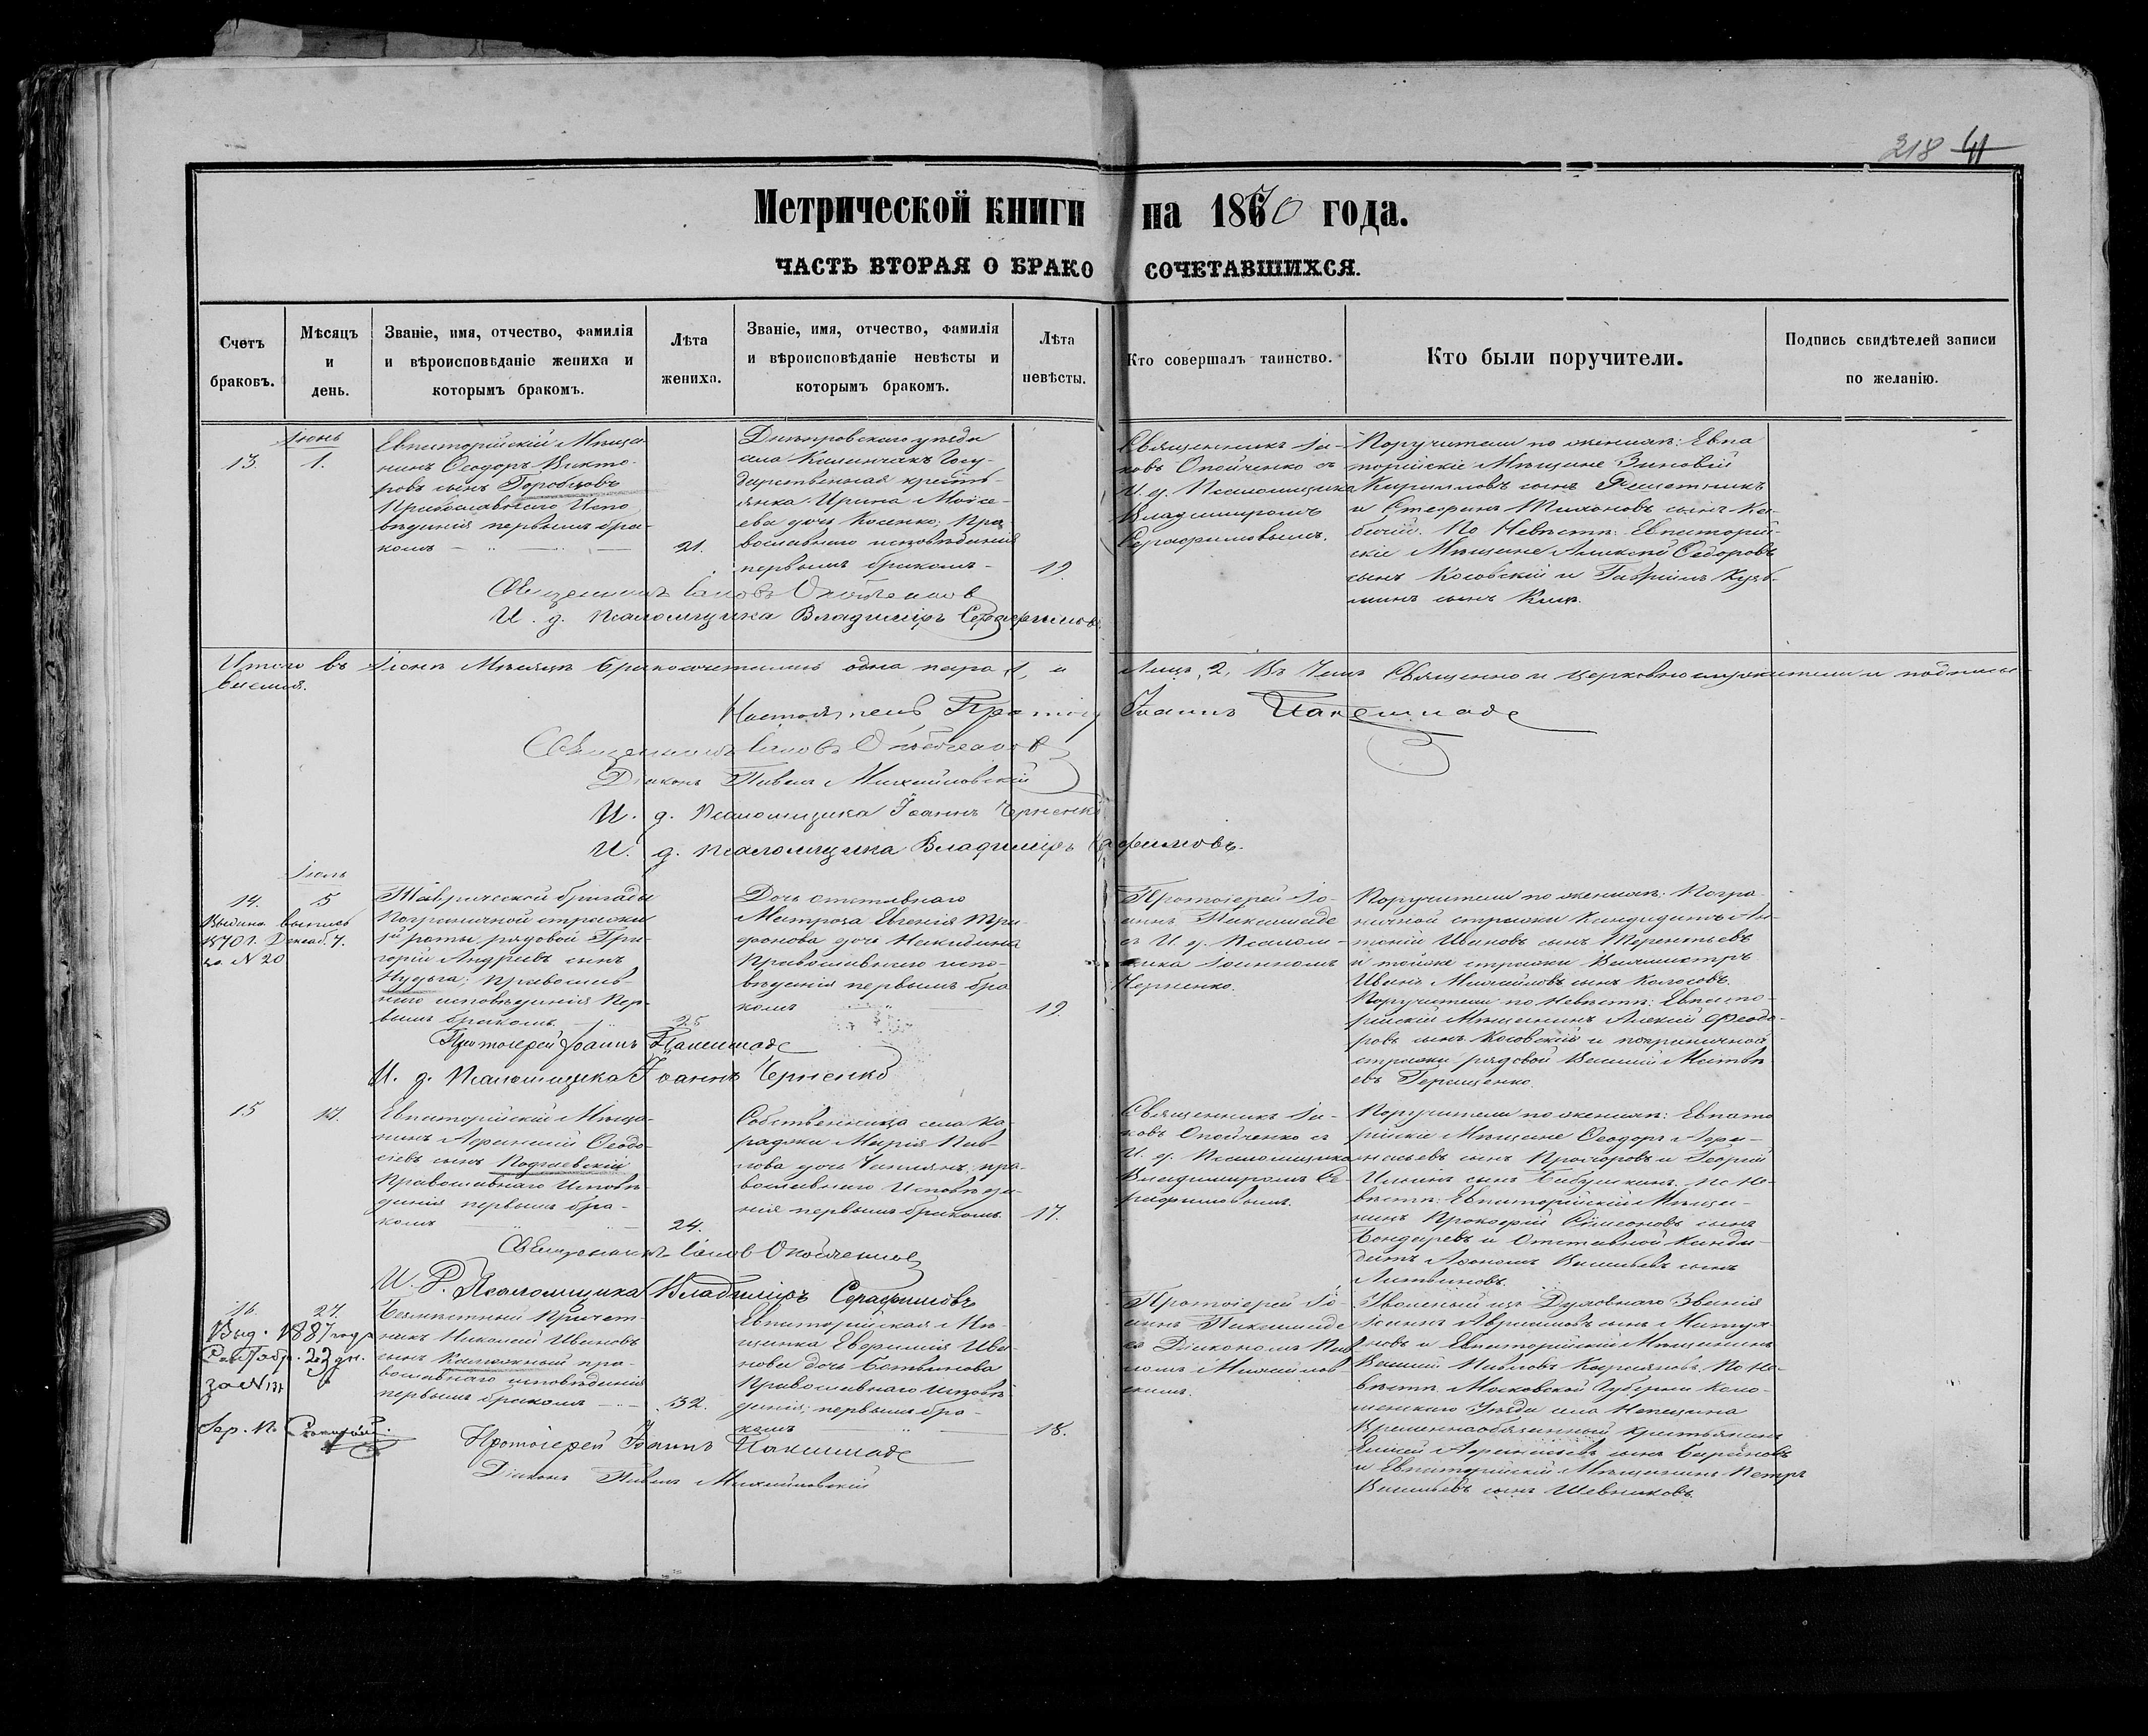 218 41
Метрической книги на 1870 года.
ЧАСТЬ ВТОРАЯ О БРАКОСОЧЕТАВШИХСЯ.
Счетъ браковъ.
Мѣсяцъ и день.
Званіе, имя, отчество, фамилія
и вѣроисповѣданіе жениха и
которымъ бракомъ.
Лѣта
жениха.
Званіе, имя, отчество, фамилія
и вѣроисповѣданіе невѣсты и
которымъ бракомъ.
Лѣта
невѣсты.
Кто совершалъ таинство.
Кто были поручители.
Подпись свидѣтелей записи
по желанію.
Іюнь
13. 1.
Евпаторійскій Мѣща-
нинъ Ѳеодоръ Викто-
ровъ сынъ Горобцовъ
Православнаго Испо
вѣданія первымъ бра-
комъ
21.
Днѣпровскаго уѣзда
села Каланчакъ Госу-
дарственная кресть-
янка Ирина Моисе-
ева дочь Косенко, Пра-
вославнаго исповѣданія
первымъ бракомъ
19.
Священникъ Іа-
ковъ Опойченко съ
И. д. Псаломщика
Владимиромъ
Серафимовымъ.
Поручители по женихѣ: Евпа
торійскіе Мѣщане Зиновій
Кирилловъ сынъ Решетникъ
и Стефанъ Тихоновъ сынъ
По Невѣстѣ: Евпаторій-
скіе Мѣщане Алексѣй Ѳедоровъ
сынъ Косовскій и Гавріилъ Кузь-
минъ сынъ
Священникъ Іаковъ Опойченко
И. д. Псаломщика Владимиръ Серафимовъ.
Итого въ Іюнѣ Мѣсяцѣ бракосочеталась одна пара 1, и Лицъ 2, Въ Чемъ Священно и церковнослужители и подписы-
ваемся.
Настоятель Протоіерей Іоаннъ
Священникъ Іаковъ Опойченко
Діаконъ Павелъ Михайловскій
И. д. Псаломщика Іоаннъ Черненко
И. д. Псаломщика Владимиръ Серафимовъ.
Іюль
14. 5
Выдана выпись
1870 г. Декаб. 7.
за N 20
Таврической бригады
Пограничной стражи
роты рядовой Гри-
горій Андреевъ сынъ
Нудьга, православ-
наго исповѣданія Пер-
вымъ бракомъ.
25
Дочь отставнаго
Матроза Евгенія Три
фонова дочь
Православнаго испо-
вѣданія первымъ бра
комъ
19.
Протоіерей Іо-
аннъ
съ И. д. Псалом-
щика Іоанномъ
Черненко.
Поручители по женихѣ: Погра-
ничной стражи Кандидатъ Ан-
тоній Ивановъ сынъ Терентьевъ
и тойже стражи Вахмистръ
Иванъ Михайловъ сынъ Колосовъ.
Поручители по Невѣстѣ: Евпато-
рійскій Мѣщанинъ Алексій Феодо-
ровъ сынъ Косовскій и пограничной
стражи рядовой Василій Матвѣ
евъ Геращенко.
Протоіерей Іоаннъ
И. д. Псаломщика Іоаннъ Черненко
15 17.
Евпаторійскій Мѣща-
нинъ Афанасій Ѳеодо-
сіевъ сынъ Подгаевскій
Православнаго Исповѣ-
данія первымъ бра-
комъ
24.
Собственница села Ка-
раджи Марія Пав-
лова дочь пра-
вославнаго Исповѣда-
нія первымъ бракомъ
17.
Священникъ Іа-
ковъ Опойченко съ
И. д. Псаломщика
Владимиромъ Се-
рафимовымъ.
Поручители по женихѣ: Евпато
рійскіе Мѣщане Ѳеодоръ Афа-
насьевъ сынъ Прохоровъ и Георгій
Ильинъ сынъ Бабушкинъ. По Не-
вѣстѣ: Евпаторійскій Мѣща-
нинъ Прокофій Симеоновъ сынъ
Бондаревъ и Отставной Канди-
датъ Васильевъ сынъ
Литвиновъ.
Священникъ Іаковъ Опойченко
И. Д. Псаломщика Владимиръ Серафимовъ
16. 24.
Выд. 1887 года
22 дн.
за N 137
Безмѣстный Причет-
никъ Николай Ивановъ
сынъ пра-
вославнаго исповѣданія
первымъ бракомъ
32.
Евпаторійская Мѣ-
щанка Евфимія Ива-
нова дочь
Православнаго Исповѣ-
данія; первымъ бра-
комъ
18.
Протоіерей Іо-
аннъ
съ Діакономъ Пав-
ломъ Михайлов
скимъ.
Уволенный изъ Духовнаго Званія
и Евпаторійскій Мѣщанинъ
Василій Павловъ По Не-
вѣстѣ Московской Губерніи Коло-
менскаго Уѣзда села
Временнообязанный крестьянинъ
и Евпаторійскій Мѣщанинъ Петръ
Васильевъ сынъ Шевляковъ.
Протоіерей Іоаннъ
Діаконъ Павелъ Михайловскій